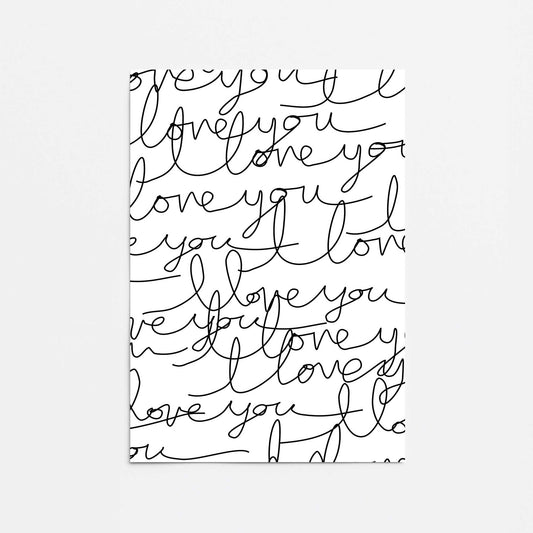 ove you I l
love you
I love you
love you
I
e you I love
I love you
ve you I love y
I love y
love you I lo
you